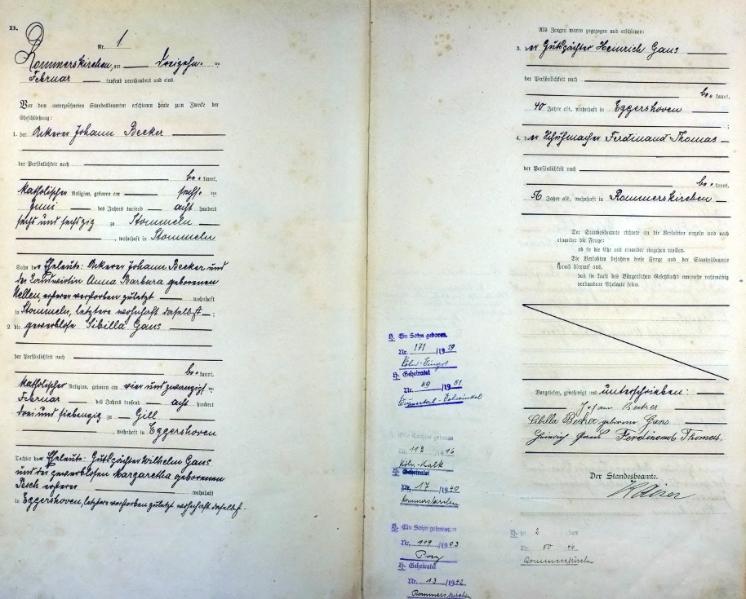 Nr. 1
Rommerskirchen, am dreizehn ten
Februar tausend neunhundert und eins.
Vor dem unterzeichneten Standesbeamten erschienen heute zum Zwecke der
Eheschließung:
1. der Ackerer Johann Becker
der Persönlichkeit nach
be kannt,
katholischer Religion, geboren am sechsten
Juni des Jahres tausend acht hundert
sechs und sechszig zu Stommeln
, wohnhaft in Stommeln
Sohn der Eheleute: Ackerer Johann Becker und
der Anna Barbara geborenen
verstorben zuletzt wohnhaft
in Stommeln, letztere wohnhaft daselbst ;
2. die gewerblose Sibilla Gans
der Persönlichkeit nach
be kannt,
katholischer Religion, geboren am vier und zwanzigsten
Februar des Jahres tausend acht hundert
drei und siebenzig zu Gill
, wohnhaft in Eggershoven
Tochter der Eheleute: Gutspächter Wilhelm Gans
und der gewerblosen Margaretha geborenen
Esch, ersterer wohnhaft
in Eggershoven, letztere verstorben zuletzt wohnhaft daselbst.
Als Zeugen waren zugezogen und erschienen:
3. der Gutspächter Heinrich Gans
der Persönlichkeit nach
be kannt,
40 Jahre alt, wohnhaft in Eggershoven
;
4. der Schuhmacher Ferdinand Thomas
der Persönlichkeit nach
be kannt,
56 Jahre alt, wohnhaft in Rommerskirchen
Der Standesbeamte richtete an die Verlobten einzeln und nach
einander die Frage:
ob sie die Ehe mit einander eingehen wollen.
Die Verlobten bejahten diese Frage und der Standesbeamte
sprach hierauf aus,
daß sie kraft des Bürgerlichen Gesetzbuchs nunmehr rechtmäßig
verbundene Eheleute seien.
Vorgelesen, genehmigt und unterschrieben:
Johann Becker
Sibilla Becker geborene Gans
Heinrich Gans Ferdinand Thomas.
Der Standesbeamte.
Ein Sohn geboren
Nr. 171 /19
Geheiratet
Nr. /19
Nr. 17 /1940
Rommerskirchen
Ein Sohn geboren
Nr. 119 /1903
Porz
Geheiratet
Nr. 13 /19
Rommerskirchen
2
Nr. 50
Rommerskirch